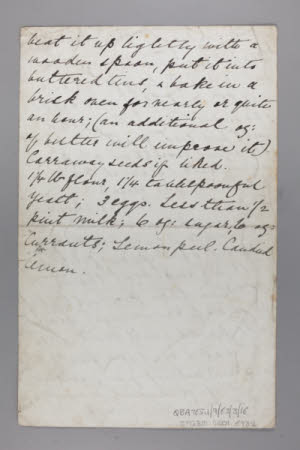 beat it up lightly with a
wooden spoon, put it into
buttered tins, & bake in a
brick oven for nearly or quite
an hour; (an additional oz:
of butter will improve it)
Carraway seeds if liked.
lb flour, 1/4 tablespoonful
yeast; 3 eggs. Less than 1/2
pint milk; 6 oz: sugar, 6 oz:
Currants; Lemon peel. Candied
Lemon.